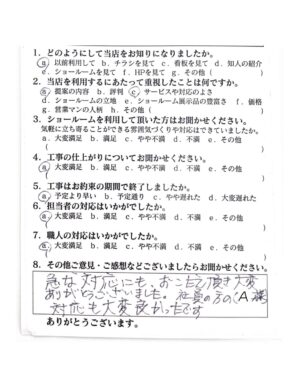 1. どのようにして当店をお知りになりましたか。
ⓐ 以前利用して b. チラシを見て c. 看板を見て d. 知人の紹介
e. ショールームを見て f. HPを見て g. その他( )
2. 当店を利用するにあたって重視したことは何ですか。
ⓐ 提案の内容 b. 評判 ⓒ サービスや対応のよさ
d. ショールームの立地 e. ショールーム展示品の豊富さ f. 価格
g. 営業マンの人柄 h. その他( )
3. ショールームを利用して頂いた方はお聞かせください。
気軽に立ち寄ることができる雰囲気づくりや対応はできていましたか。
a. 大変満足 b. 満足 c. やや不満 d. 不満 e. その他
( )
4. 工事の仕上がりについてお聞かせください。
ⓐ 大変満足 b. 満足 c. やや不満 d. 不満 e. その他
( )
5. 工事はお約束の期間で終了しましたか。
ⓐ 予定より早い b. 予定通り c. やや遅れた d. 大変遅れた
6. 担当者の対応はいかがでしたか。
ⓐ 大変満足 b. 満足 c. やや不満 d. 不満 e. その他
( )
7. 職人の対応はいかがでしたか。
ⓐ 大変満足 b. 満足 c. やや不満 d. 不満 e. その他
( )
8. その他ご意見・ご感想などございましたらお聞かせください。
急な対応にも、おこたえ頂き大変
ありがとうございました。社員の方の(A様
対応も大変良かったです
ありがとうございます。